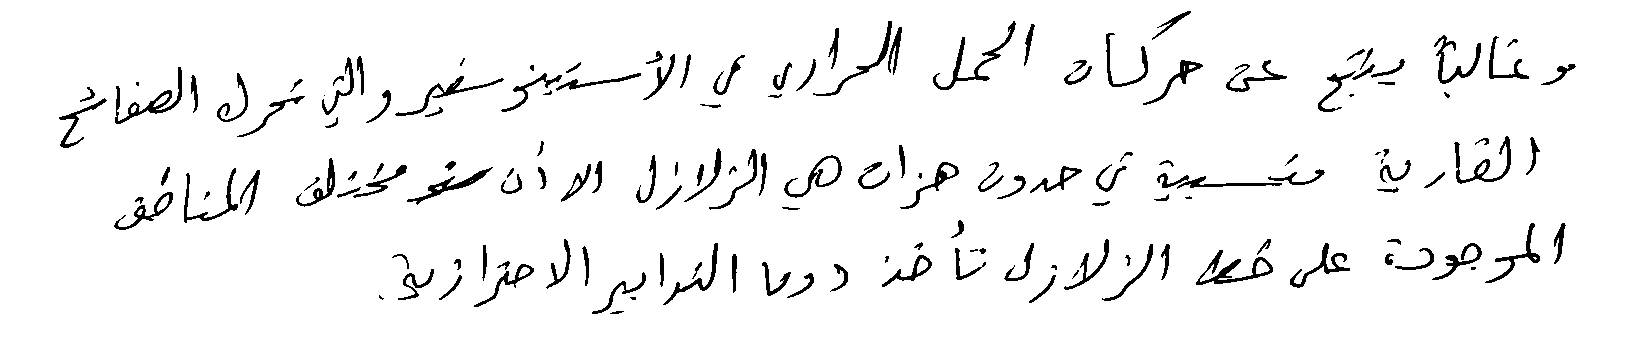 وغالباً ينتج عن حركات الحمل الحراري في الأستينوسفير والتي تحرك الصفائح
القارية متسببة في حدوث هزات هي الزلازل الا أن مختلف المناطق
الموجودة على خط الزلازل تأخذ دوما التدابير الاحترازية.